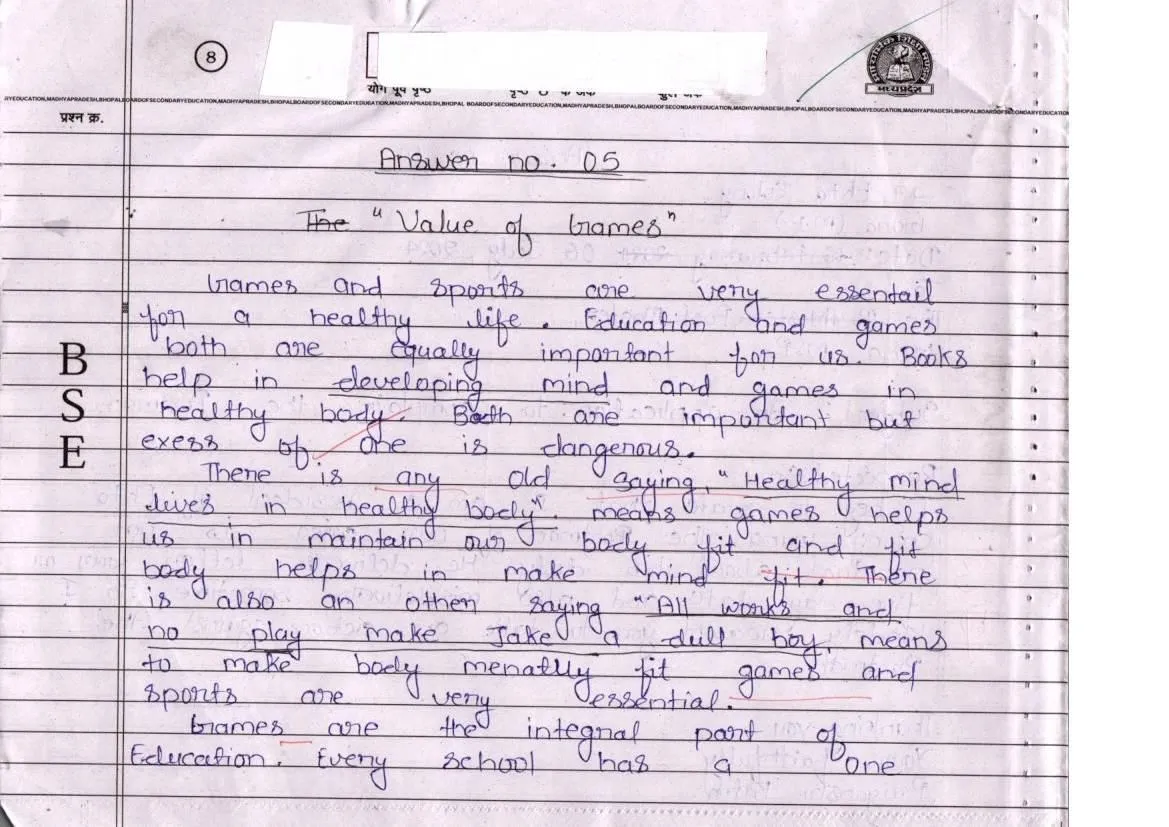 8
योग पूर्व पृष्ठ
मध्यप्रदेश
RYEDUCATION,MADHYAPRADESH,BHOPALBOARDOFSECONDARYEDUCATION,MADHYAPRADESH,BHOPALBOARDOFSECONDARYEDUCATION,MADHYAPRADESH,BHOPAL BOARDOFSECONDARYEDUCATION,MADHYAPRADESH,BHOPALBOARDOFSECONDARYEDUCATION,MADHYAPRADESH,BHOPALBOARDOFSECONDARYEDUCATION
प्रश्न क्र.
Answer no. 05
The "Value of Games"
Games and sports are very essentail
for a healthy life. Education and games
both are equally important for us. Books
help in developing mind and games in
healthy body. Both are important but
exess of one is dangerous.
There is any old saying, "Healthy mind
lives in healthy body" means games helps
us in maintain our body fit and fit
body helps in make mind fit. There
is also an other saying "All works and
no play make Jake a dull boy, means
to make body menatlly fit games and
sports are very essential.
Games are the integral part of
Education. Every school has a one
B
S
E